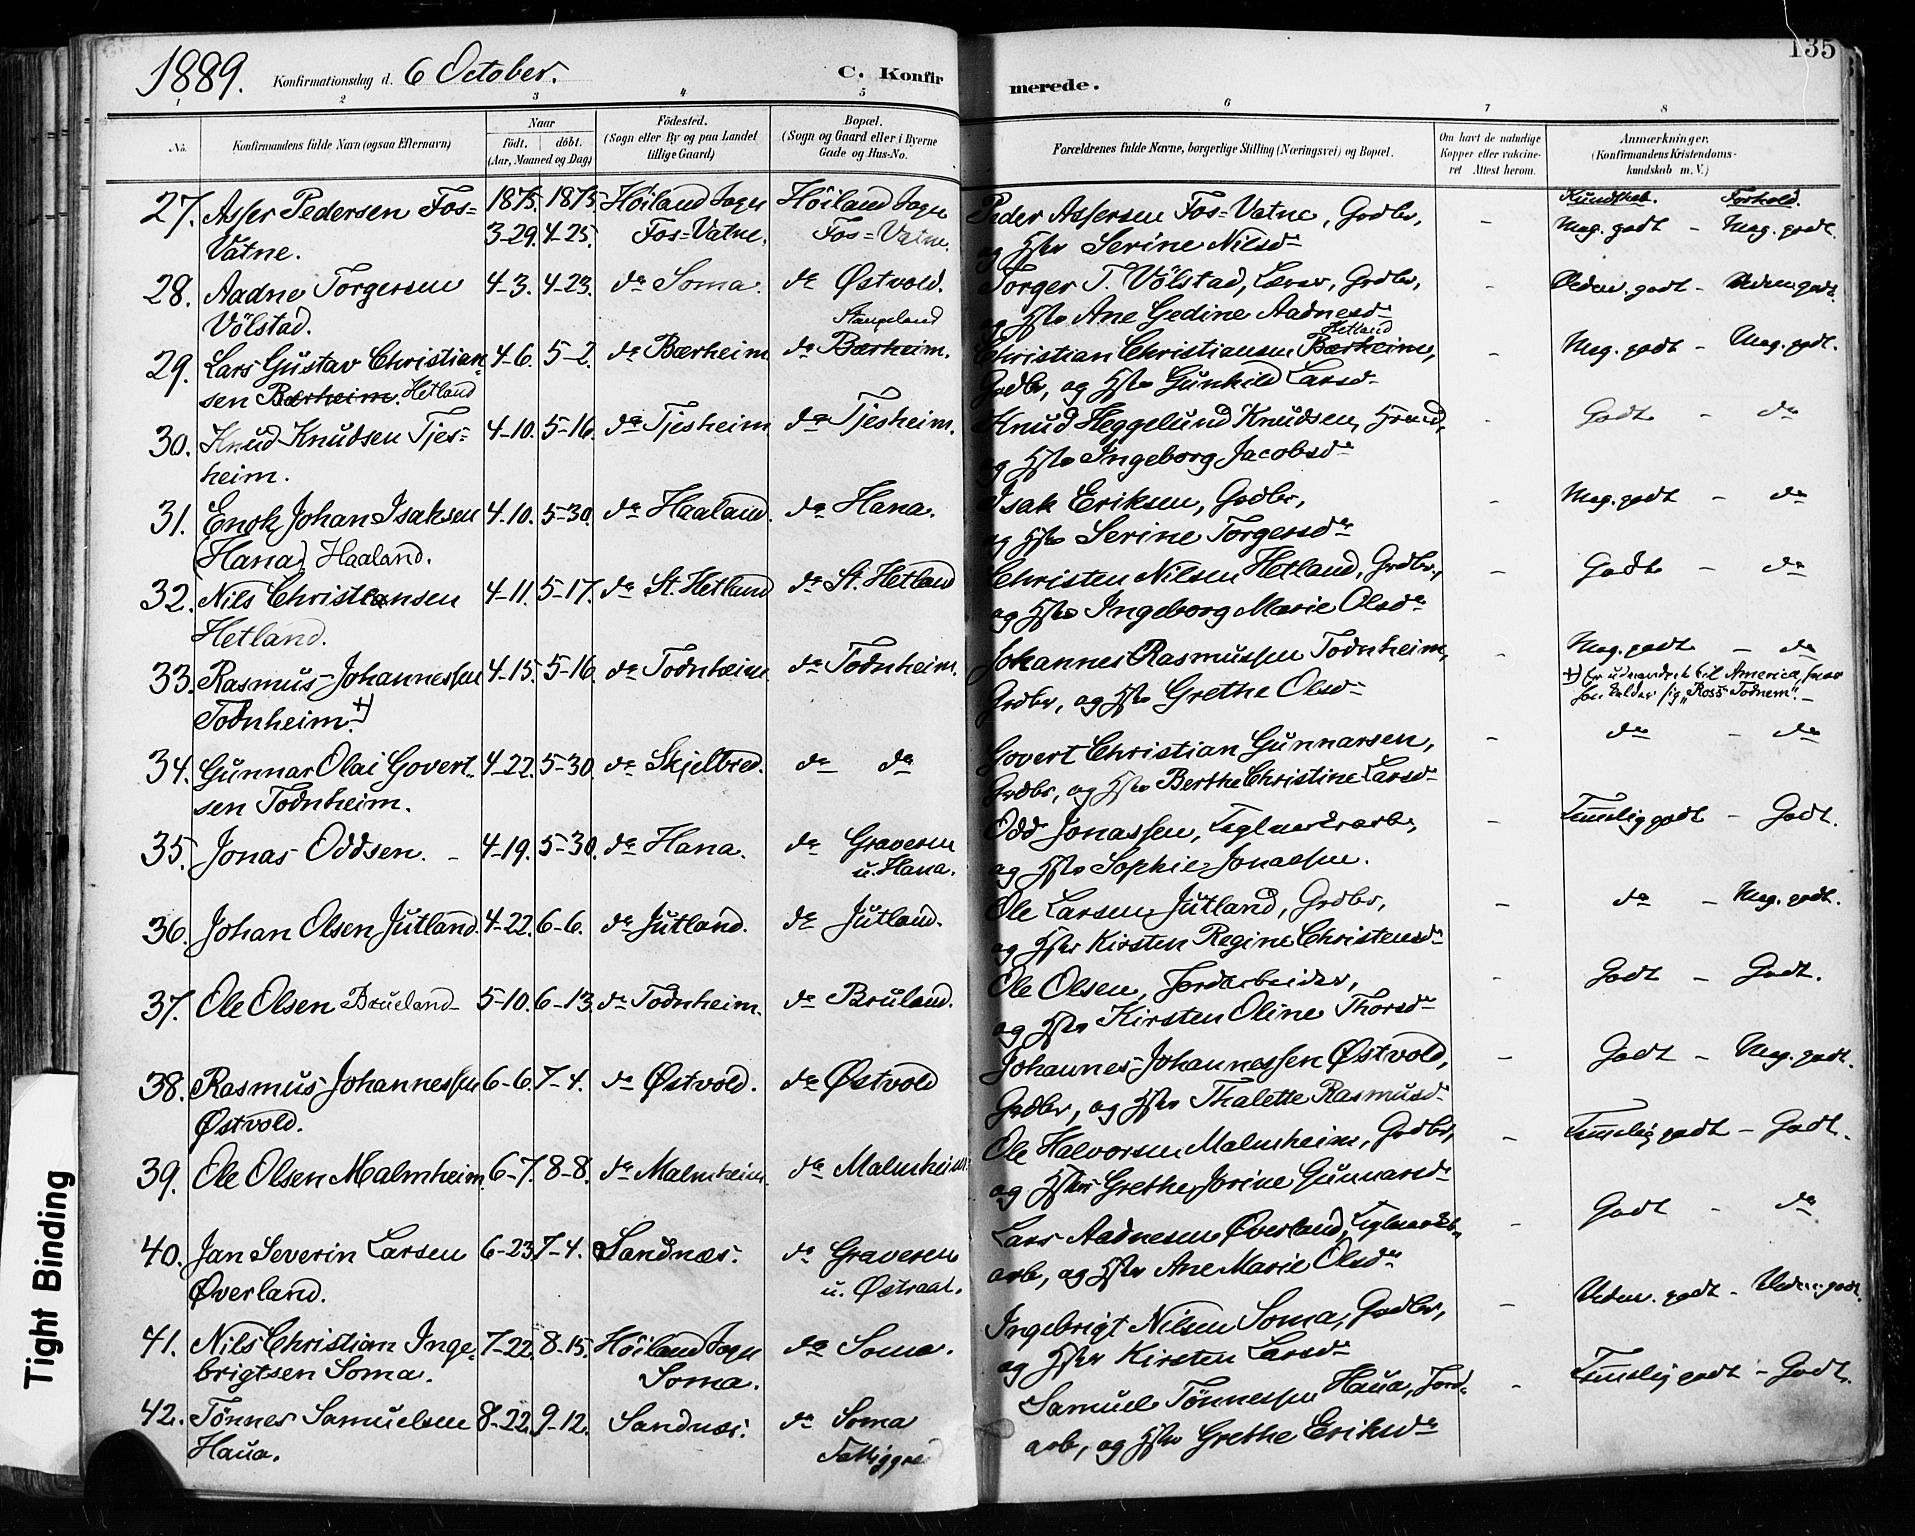 135
1889. Konfirmationsdag d. 6 October. C. Konfir merede.
1 2 3 4 5 6 7 8
No. Konfirmandens fulde Navn (ogsaa Efternavn) Naar født. døbt. (Aar, Maaned og Dag) Fødested. (Sogn eller By og paa Landet tillige Gaard) Bopæl. (Sogn og Gaard eller i Byerne Gade og Hus-No. Forældrenes fulde Navne, borgerlige Stilling (Næringsvei) og Bopæl. Om havt de naturlige Kopper eller vakcineret Attest herom. Anmærkninger. (Konfirmandens Kristendomskundskab m. V.)
Kundskab. Forhold.
27. Asser Pedersen Fos= 1875. 1875. Höiland Sogn Höiland Sogn Peder Assersen Fos=Vatne, Grdbr,
Vatne. 3-29. 4-25. Fos=Vatne. Fos=Vatne. og Hstr Serine Nilsdr - Meg. godt - Meg. godt.
28. Aadne Torgersen 4-3. 4-23. do Soma. do Østvold. Torger T. Völstad, Lærer, Grdbr, - Udm. godt - Udm. godt.
Völstad. og Hstr Ane Gedine Aadnesdr
Stangeland Hetland
29. Lars Gustav Christian= 4-6. 5-2. do Bærheim do Bærheim. Christian Christiansen Bærheim, - Meg. godt - Meg. godt.
sen Bærheim. Hetland Grdbr, og Hstr Gunhild Larsdr
30. Knud Knudsen Tjes= 4-10. 5-16. do Tjesheim. do Tjesheim. Knud Heggelund Knudsen, - Godt - do
heim. og Hstr Ingeborg Jacobsdr
31. Enok Johan Isaksen 4-10. 5-30. do Haaland. do Hana. Isak Eriksen, Grdbr, - Meg. godt - do
(Hana) Haaland. og Hstr Serine Torgersdr
32. Nils Christensen 4-11. 5-17. do St. Hetland do St. Hetland Christen Nilsen Hetland, Grdbr, - Godt - do
Hetland. og Hstr Ingeborg Marie Olsdr
33. Rasmus Johannessen 4-15. 5-16. do Todnheim. do Todnheim. Johannes Rasmussen Todnheim, - Meg. godt - do
Todnheim. +) Grdbr, og Hstr Grethe Olsdr +) Er udvandret til America, hvor
han kalder sig "Ross Todnem". -
34. Gunnar Olai Govert= 4-22. 5-30. do Skjelbred. do do Govert Christian Gunnarsen, - do - do
sen Todnheim. Grdbr, og Hstr Berthe Christine Larsdr
35. Jonas Oddsen. - 4-19. 5-30. do Hana. do Graveren Odd Jonassen, Teglverksarb, - Temelig godt - Godt.
u. Hana. og Hstr Sophie Jonassen.
36. Johan Olsen Jutland. 4-22. 6-6. do Jutland. do Jutland. Ole Larsen Jutland, Grdbr, - do - Meg. godt.
og Hstr Kirsten Regine Christensdr
37. Ole Olsen Brueland 5-10. 6-13. do Todnheim. do Bruland. Ole Olsen, Jordarbeider, - Godt - Godt.
og Hstr Kirsten Oline Thorsdr
38. Rasmus Johannessen 6-6. 7-4. do Østvold. do Østvold Johannes Johannessen Østvold, - Godt - Meg. godt.
Østvold. Grdbr, og Hstr Thalette Rasmusdr
39. Ole Olsen Malmheim. 6-7. 8-8. do Malmheim. do Malmheim. Ole Halvorsen Malmheim, Grdbr, - Temelig godt - Godt.
og Hstr Grethe Jorine Gunnarsdr
40. Jan Severin Larsen 6-23. 7-4. Sandnæs. do Graveren Lars Aadnesen Øverland, - Godt - do
Øverland. u. Østraat. arb, og Hstr Ane Marie Olsdr
41. Nils Christian Inge= 7-22. 8-15. Höiland Sogn do Soma. Ingebrigt Nilsen Soma, Grdbr, - Udm. godt - Udm. godt.
brigtsen Soma. Soma. og Hstr Kirsten Larsdr
42. Tönnes Samuelsen 8-22. 9-12. Sandnæs. do Soma Samuel Tönnessen Haua, Jord= - Temelig godt - Godt.
Haua. arb, og Hstr Grethe Eriksdr
Tight Binding